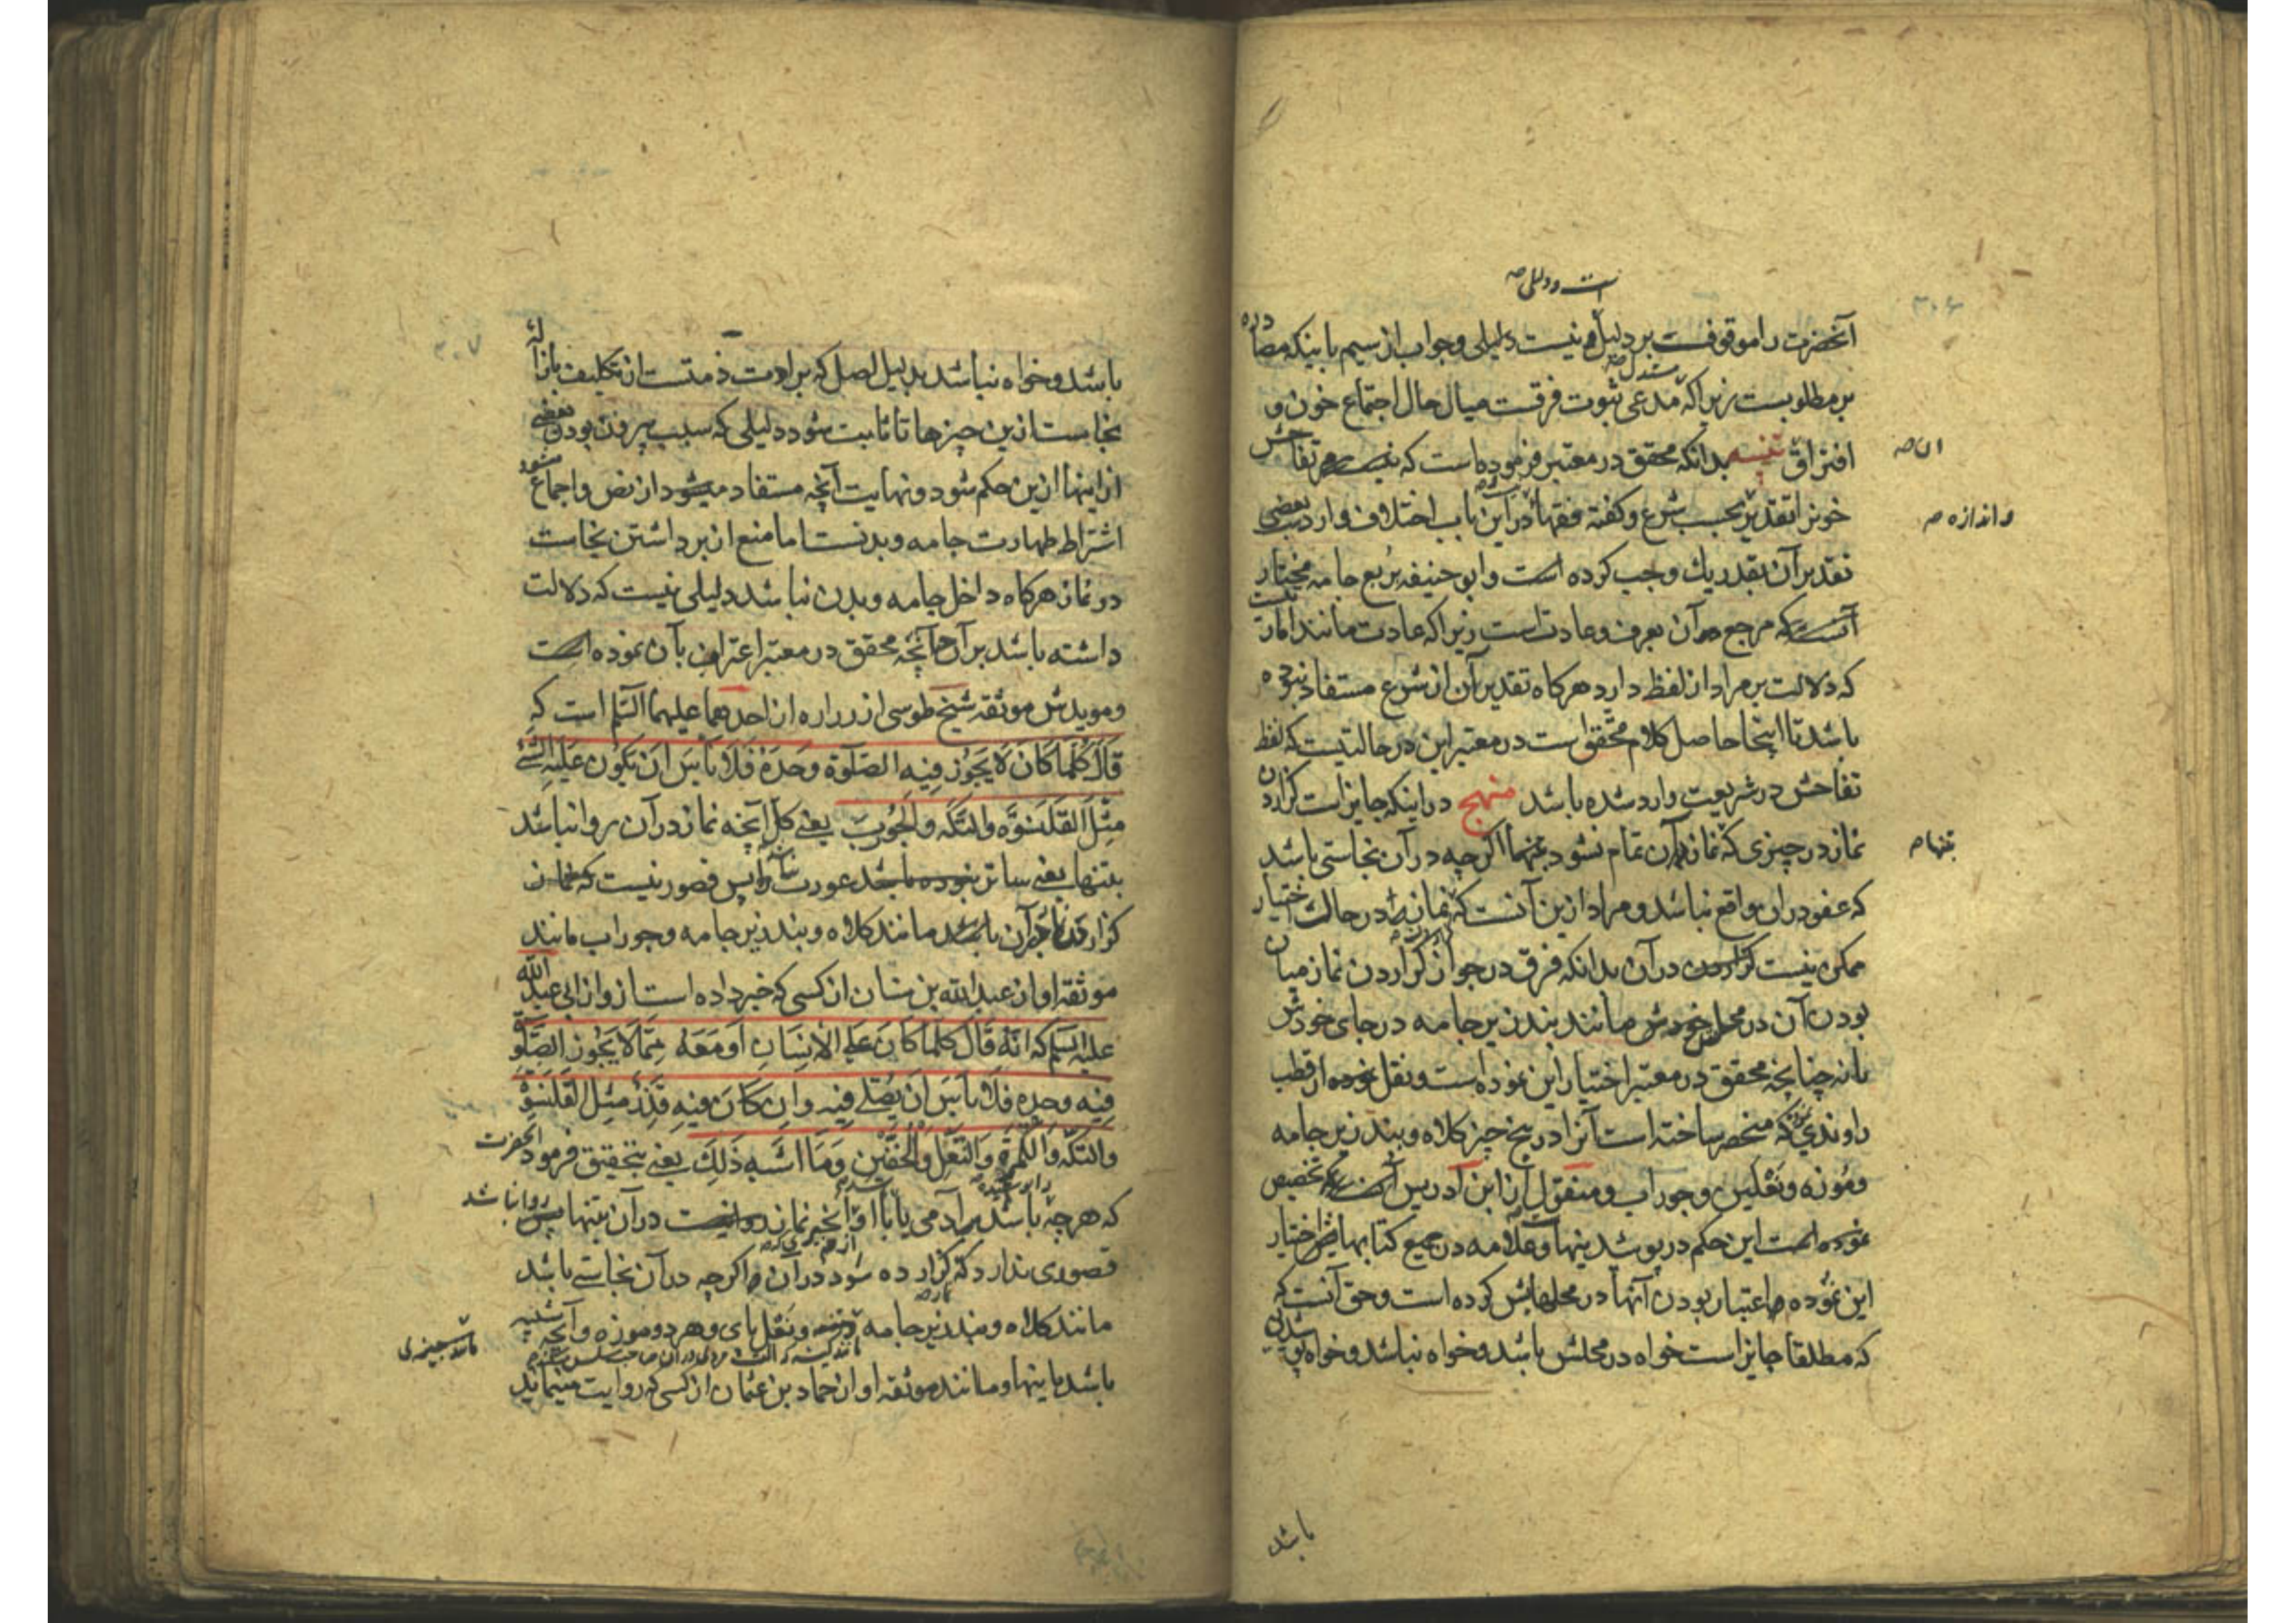 ۳۰۶
است و دلیلی صه
آنحضرت را موقوفست بر دلیل و نیست دلیلی وجواب از سیم باینکه مصادره
بر مطلوبست زیرا که مدعی ثبوت فرقت میان حال اجتماع خون و
افتراق تنبیه بدانکه محقق در معتبر فرموده است که نیست مر تفاحش
ان صه
خونرا تقدیر بحسب شرع وگفته فقها در این باب اختلاف وارد بعضی
واندازه صه
تقدیر آن بقدر یك وجب کرده است وابو حنیفه بربع جامه مختار
آنست که مرجع آن بعرف وعادت است زیرا که عادت مانند امارت
که دلالت بر مراد از لفظ دارد هرکاه تقدیر آن از شرع مستفاد نبوده
باشد تا اینجا حاصل کلام محقق است در معتبر این در حالتیست که لفظ
تفاحش در شریعت وارد شده باشد منهج در اینکه جایز است گزاردن
نماز در چیزی که نماز در آن تمام نشود تنهما اگر چه در آن نجاستی باشد
تنها صه
که عفو در او واقع نباشد ومراد از این آنست که نماز در حالت اختیار
ممکن نیست گزاردن در آن بدانکه فرق در جواز گزاردن نماز میان
بودن آن در محل خودش مانند بند زیر جامه در جای خودش
یا نه چنانچه محقق در معتبر اختیار این نموده است ونقل نموده از قطب
راوندی که منحصر ساخته است آنرا در پنج چیز کلاه وبند زیر جامه
وموزه ونعلین وجوراب ومنقول از ابن ادریس تخصیص
نموده است این حکم در پوشیدنیها وعلامه در جمیع کتابهایش اختیار
این نموده با اعتبار بودن آنها در محلهایش کرده است وحق آنست که
که مطلقا جایز است خواه در محلش باشد وخواه نباشد وخواه پوشیدنی
باشد
۳۰۷
باشد وخواه نباشد بدلیل اصل که براءت ذمتست از تکلیف بازاله
نجاست از این چیزها تا ثابت شود دلیلی که سبب بیرون بودن بعضی
از اینها از این حکم شود ونهایت آنچه مستفاد میشود از نص واجماع
اشتراط طهارت جامه وبدنست اما منع از برداشتن نجاست
در نماز هرکاه داخل جامه وبدن نباشد دلیلی نیست که دلالت
داشته باشد بر آن چنانچه محقق در معتبر اعتراف بآن نموده است
ومویدش موثقه شیخ طوسی از زراره از احدهما علیهما السلم است که
قَالَ كُلَّمَا كَانَ لَا يَجُوزُ فِيهِ الصَّلٰوة وَحْدَهُ فَلَا بَأسَ اَنْ يَكُونَ عَلَيْهِ الشَّيْ
مِثْلُ القَلَنْسُوَةِ وَالتِّكَّةِ والجُورَبِ یعنی کل آنچه نماز در آن روا نباشد
بتنهایی یعنی ساتر عورت پس قصور نیست که نماز
گزارد در آن مانند کلاه وبند زیر جامه وجوراب مانند
موثقه او از عبد الله بن سنان از کسی که خبر داده است از وی از ابی عبد الله
علیه السلم که انّه قَالَ كلَّمَا كَانَ عَلَى الْاِنْسَانِ اَوْ مَعَهُ مِمَّا لَا يَجُوزُ الصَّلٰوة
فِيهِ وحده فَلَا بَأسَ اَنْ يُصَلِّي فِيهِ وَاِنْ كَانَ فِيهِ قَذَرٌ مِثْلُ القَلَنْسُوَةِ
وَالتِّكَّةِ وَالكُمْرَةِ وَالنَّعْلِ وَالْخُفَّيْنِ وَمَا اَشْبَهَ ذَلِكَ یعنی بتحقیق فرمود انحضرت
که هرچه باشد بر آدمی یا با او از آنچه نماز در آن بتنها روا نباشد پس
قصوری ندارد که گزارده شود در آن واگر چه در آن نجاستی باشد
مانند کلاه وبند زیر جامه ونعل پای وهر دو موزه وآنچه شبیه
مانند چیزی
باشد باینها ومانند موثقه او از حماد بن عثمان از کسی که روایت مینماید